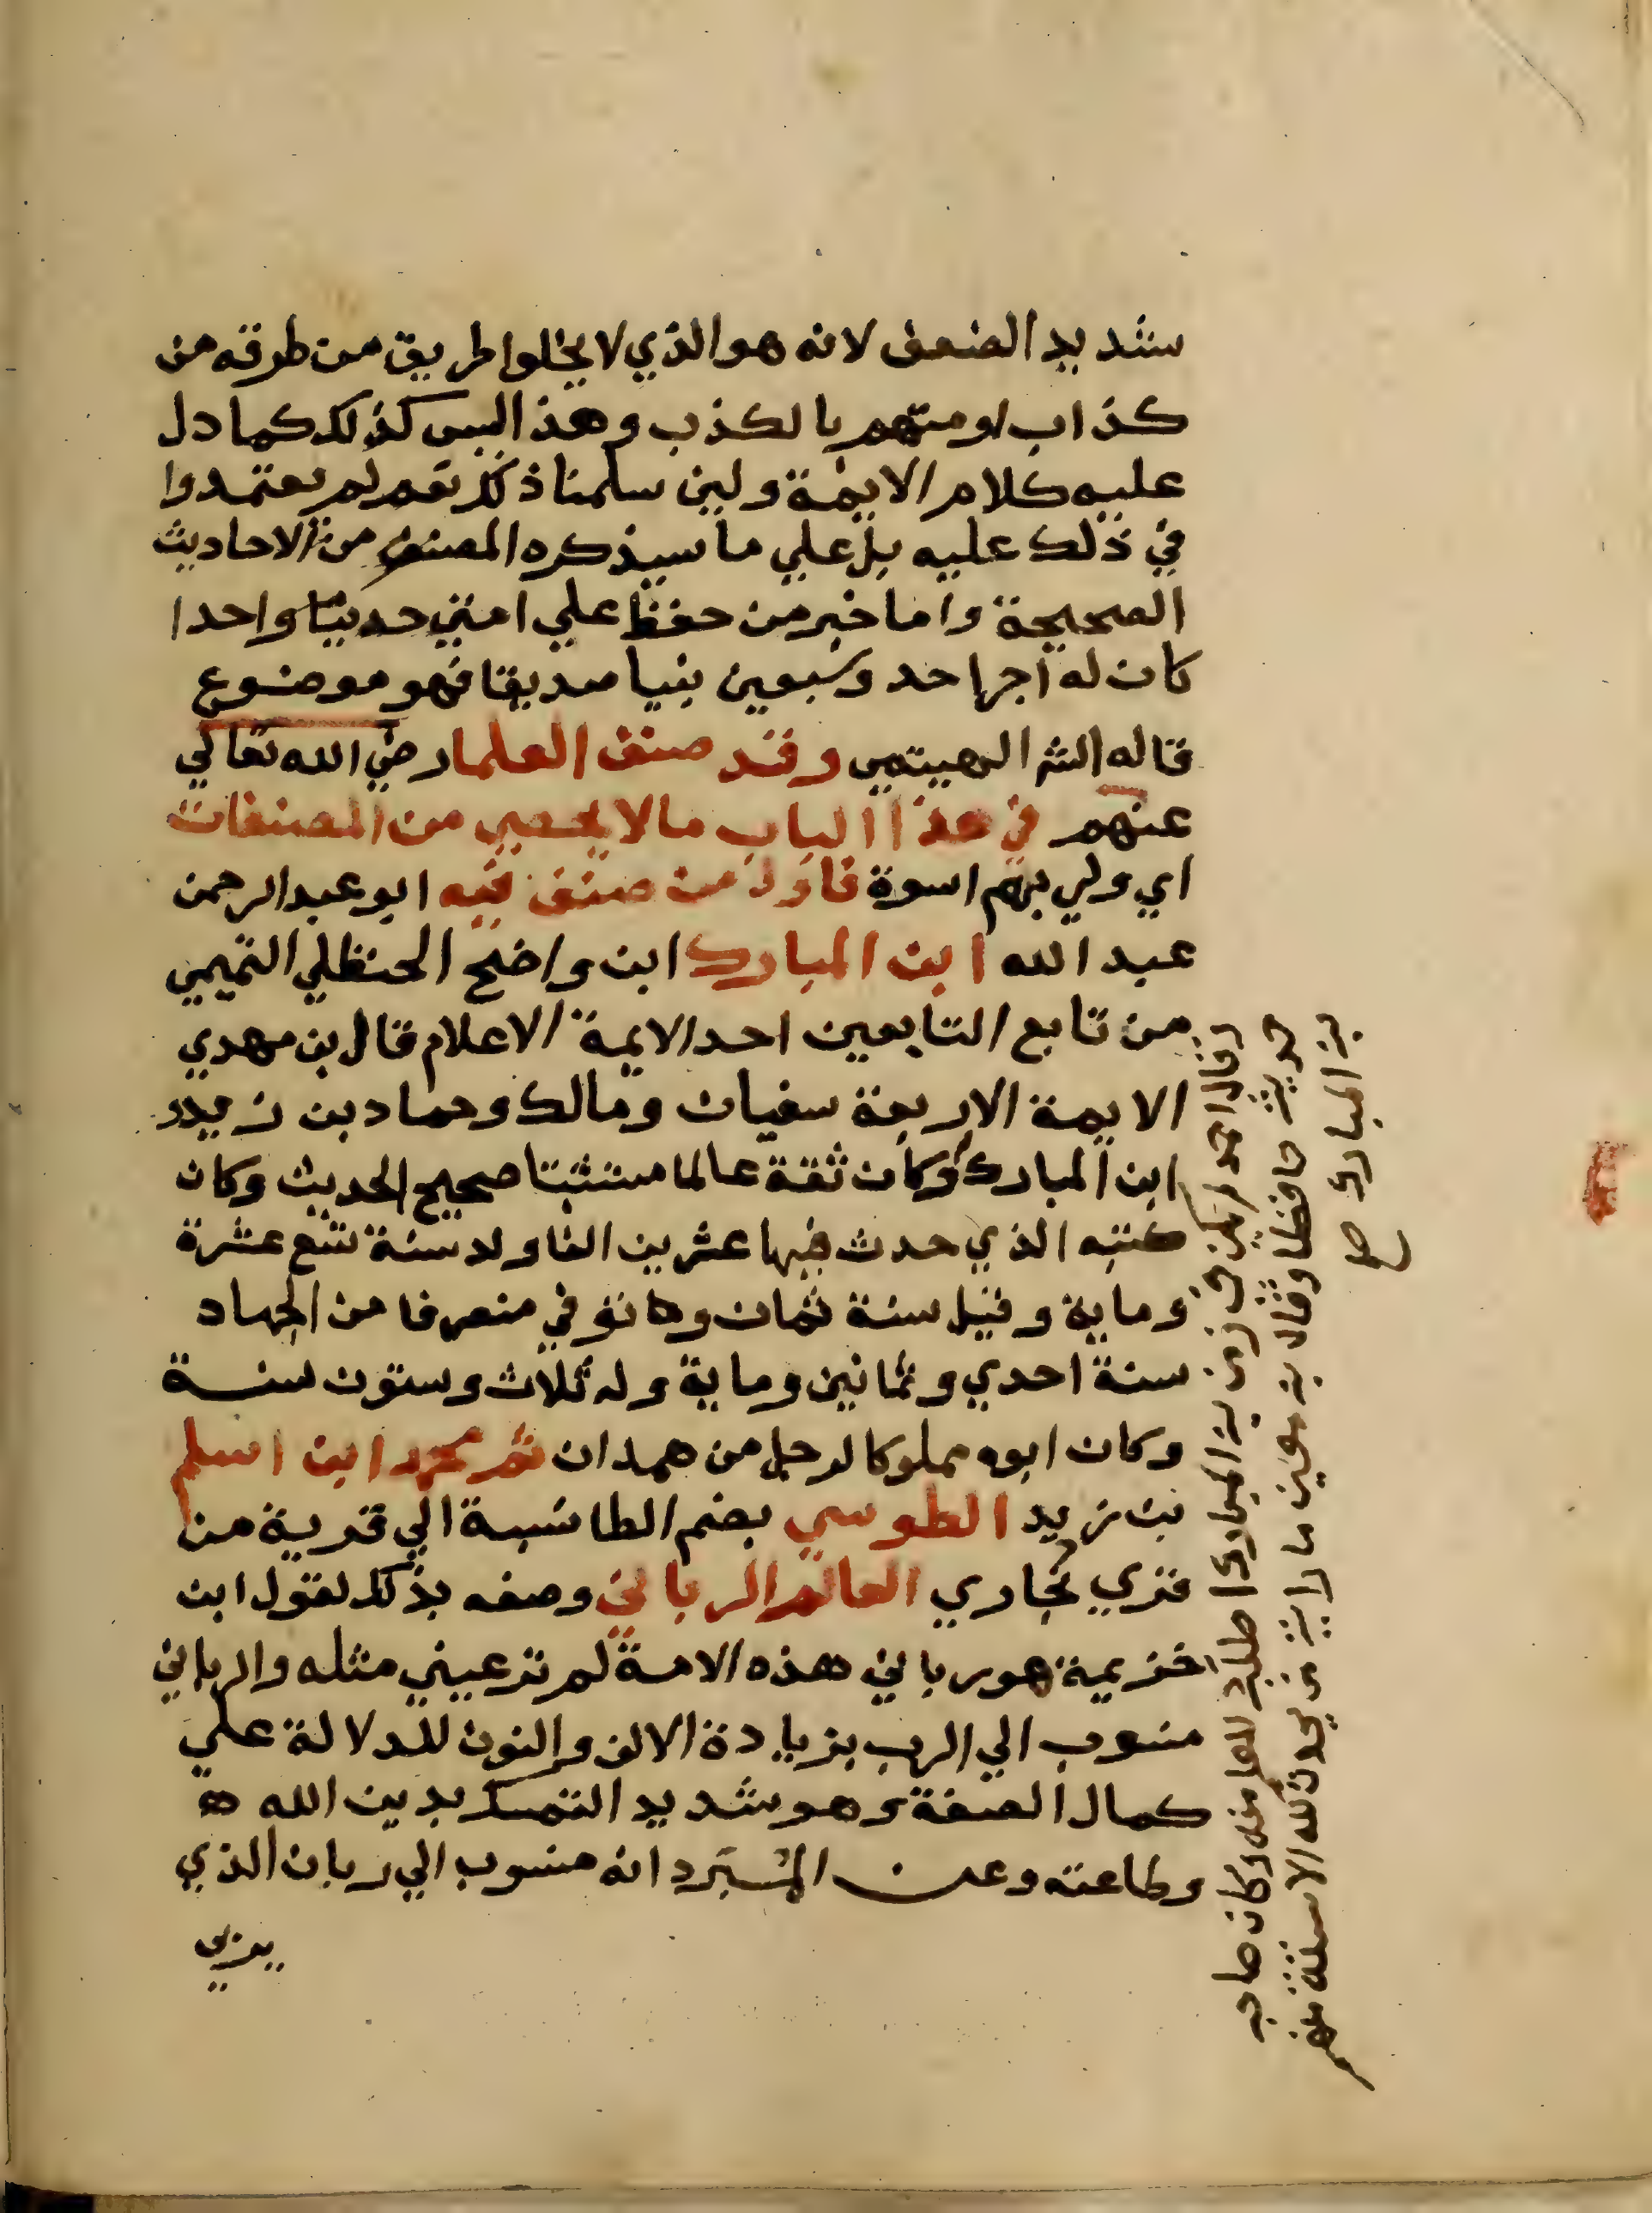 شديد الضعف لانه هو الذي لا يخلوا طريق من طرقه من
كذاب او متهم بالكذب وهذا ليس كذلك كما دل
عليه كلام الايمة ولين سلمنا ذلك فهم لم يعتمدوا
في ذلك عليه بل علي ما سيذكره المصنف من الاحاديث
الصحيحة واما خبر من حفظ علي امتي حديثا واحدا
كان له اجر احد وسبعين نبيا صديقا فهو موضوع
قاله الشر الهيتمي وقد صنف العلما رضي الله تعالي
عنهم في هذا الباب ما لا يحصي من المصنفات
اي ولي بهم اسوة فاول من صنف فيه ابو عبد الرحمن
عبد الله ابن المبارك ابن واضح الحنظلي التميمي
من تابع التابعين احد الايمة الاعلام قال بن مهدي
الايمة الاربعة سفيان ومالك وحماد بن زيد و
ابن المبارك وكان ثقة عالما متثبتا صحيح الحديث وكان
كتبه الذي حدث فيها عشرين الفا ولد سنة تسع عشرة
وماية وقيل سنة ثمان ومات في منصرفا من الجهاد
سنة احدي وثمانين وماية وله ثلاث وستون سنة
وكان ابوه مملوكا لرجل من همدان ثم محمد ابن اسلم
بن زيد الطوسي بضم الطا نسبة الي قرية من
قري بخاري العالم الرباني وصفه بذلك لقول ابن
خزيمة هو رباني هذه الامة لم تر عيني مثله والرباني
منسوب الي الرب بزيادة الالف والنون للدلالة علي
كمال الصفة وهو شديد التمسك بدين الله
وطاعته وعن المبرد انه منسوب الي ربان الذي
يربي
وقال احمد لم يكن في زمن بن المبارك اطلب للعلم منه وكان صاحب
حديث حافظا وقال بن معين ما رايت من يحدث لله الا ستة منهم
بن المبارك صح